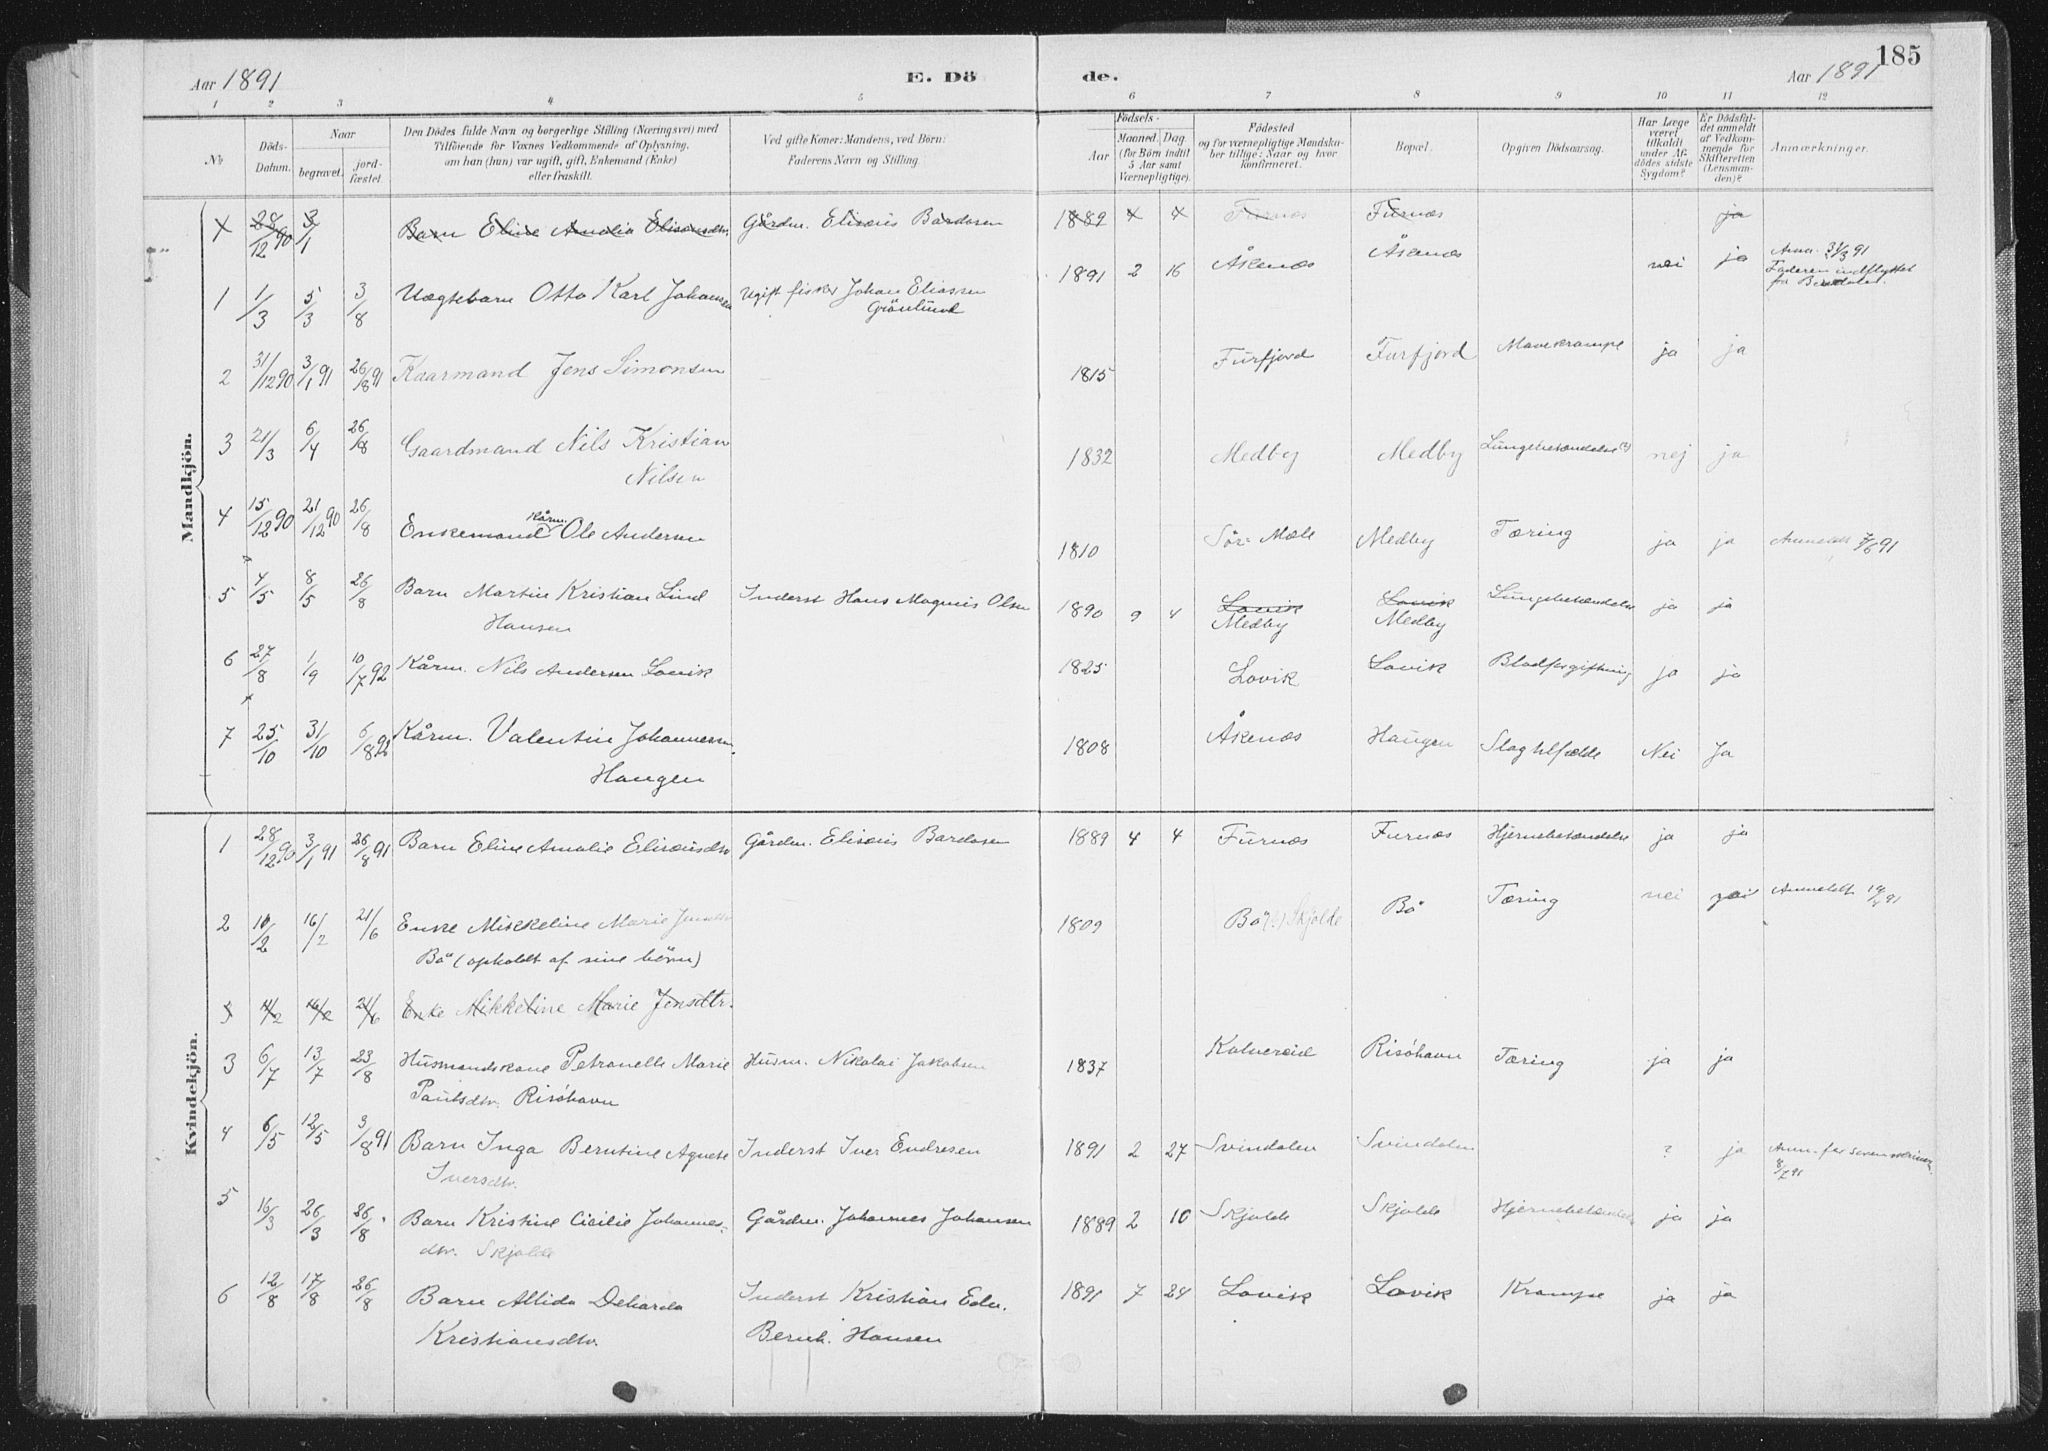 185
Aar 1891 E. Dö de. Aar 1891
1 2 3 4 5 6 7 8 9 10 11 12
№
Döds-Datum.
Naar begravet. jordfæstet.
Den Dödes fulde Navn og borgerlige Stilling (Næringsvei) med
Tilföiende for Voxnes Vedkommende af Oplysning,
om han (hun) var ugift, gift, Enkemand (Enke)
eller fraskilt.
Ved gifte Koner: Mandens, ved Börn:
Faderens Navn og Stilling.
Födsels-
Aar Maaned. Dag.
(for Börn indtil 5 Aar samt Værnepligtige).
Födested
og for værnepligtige Mandskaber tillige: Naar og hvor konfirmeret.
Bopæl.
Opgiven Dödsaarsag.
Har Læge været tilkaldt under Afdödes sidste Sygdom?
Er Dödsfaldet anmeldt af Vedkommende for Skifteretten (Lensmanden)?
Anmærkninger.
Mandkjön.
1 28/12 90 3/1 Barn Eline Amalia Elisæusdtr. Gårdm. Elisæus Bardosen 1889 4 4 Furnæs Furnæs ja
1 1/3 5/3 3/8 Uægtebarn Otto Karl Johansen Ugift fisker Johan Eliassen Grönlund 1891 2 16 Åkenæs Åkenæs nei ja Anm. 31/3 91
Faderen indflyttet
fra
2 31/12 90 3/1 91 26/8 91 Kaarmand Jens Simonsen 1815 Furfjord Furfjord Mavekrampe ja ja
3 21/3 6/4 26/8 Gaardmand Nils Kristian
Nilsen 1832 Medby Medby Lungebetændelse (?) nej ja
4 15/12 90 21/12 90 26/8 Enkemand Kårm. Ole Andersen 1810 Sör-Mæle Medby Tæring ja ja Anmeldt 7/6 91
5 4/5 8/5 26/8 Barn Martin Kristian Lind
Hansen Inderst Hans Magnus Olsen 1890 9 4 Lovik
Medby Lovik
Medby Lungebetændelse ja ja
6 27/8 1/9 10/7 92 Kårm. Nils Andersen Lovik 1825 Lovik Lovik Blodforgiftning ja ja
7 25/10 31/10 6/8 92 Kårm. Valentin Johannessen.
Haugen 1808 Åkenæs Haugen Slagtilfælde Nei Ja
Kvindekjön.
1 28/12 90 3/1 91 26/8 91 Barn Eline Amalie Elisæusdtr Gårdm. Elisæus Bardosen 1889 4 4 Furnæs Furnæs Hjernebetændelse ja ja
2 10/2 16/2 21/6 Enke Mikkeline Marie Jensdtr
Bö (opholdt af sine börn) 1809 Bö (?) Skjolde Bö Tæring nei Anmeldt
3 11/2 16/2 21/6 Enke Mikkeline Marie Jensdtr.
3 6/7 13/7 23/8 Husmandskone Petronelle Marie
Paulsdtr. Risöhavn Husm. Nikolai Jakobsen 1837 Kalvereid Risöhavn Tæring ja ja
4 6/5 12/5 3/8 91 Barn Inga Berntine Agnete
Iversdtr. Inderst Iver Endresen 1891 2 27 Svindalen Svindalen ? ja Anm. for
8/7 91
5 16/3 26/3 26/8 Barn Kristine Cicilie Johannes-
dtr. Skjolde Gårdm. Johannes Johansen 1889 2 10 Skjolde Skjolde Hjernebetændelse ja ja
6 12/8 17/8 26/8 Barn Allida Deharda
Kristiansdtr. Inderst Kristian Edv.
Bernh. Hansen 1891 7 24 Lovik Lovik Krampe ja ja